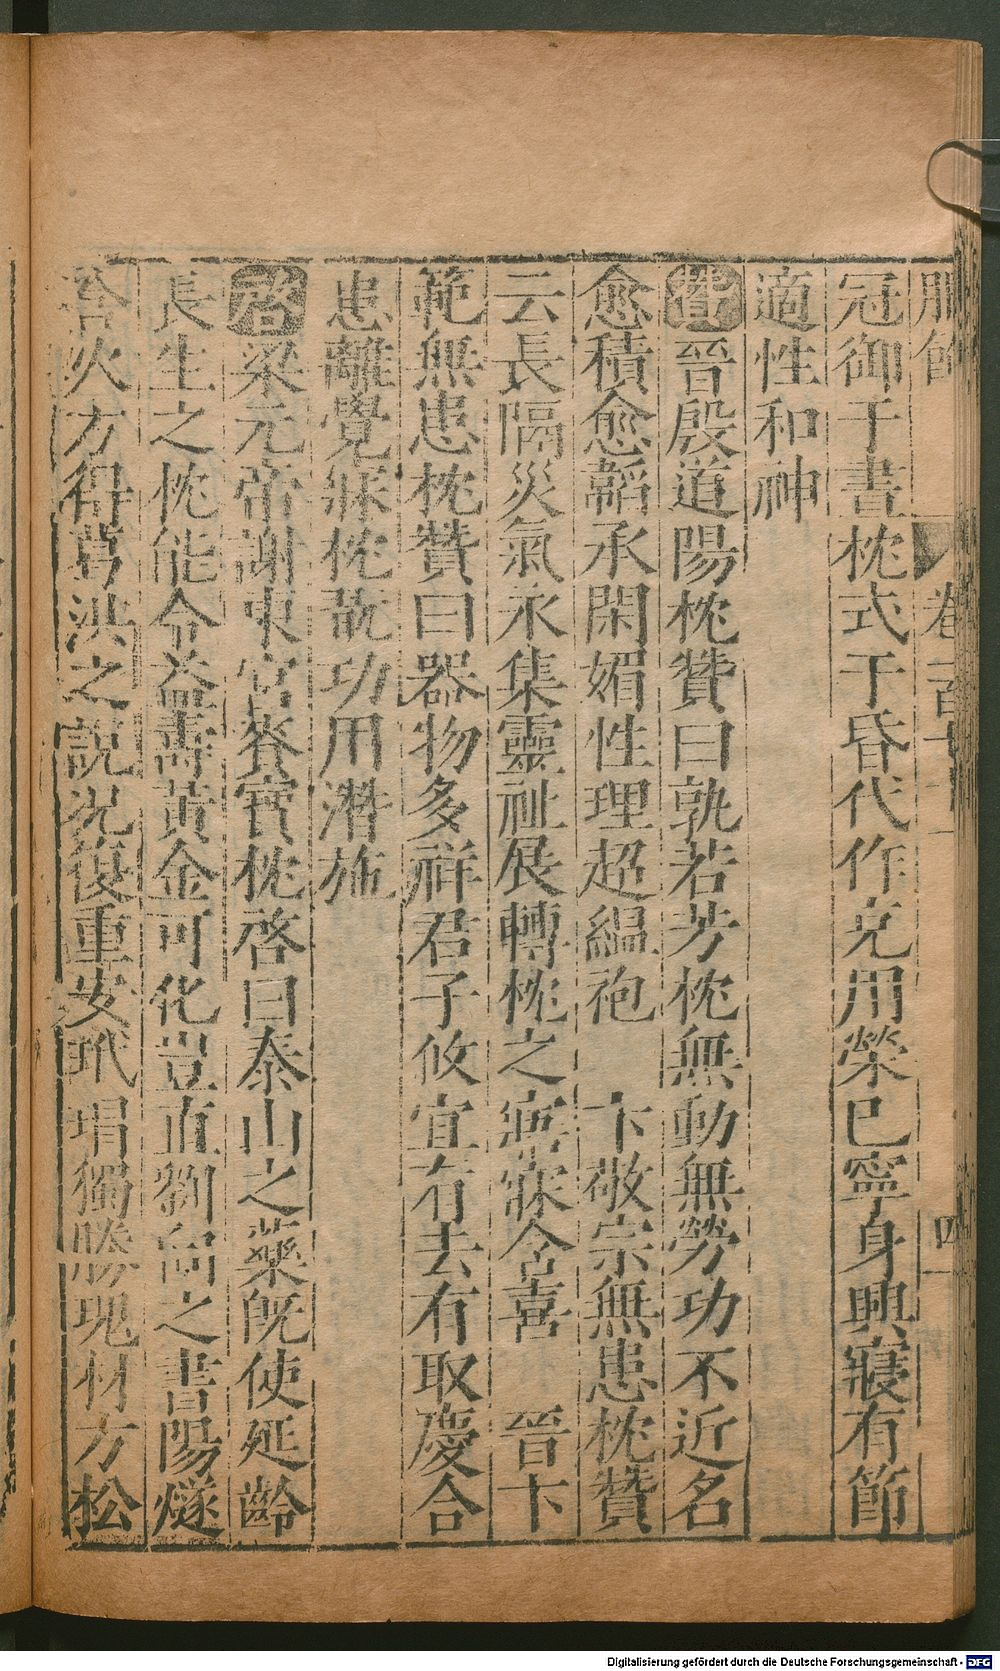 服飾 卷一百七十一 四
冠御于晝枕式于昏代作克用榮己寧身興寢有節
適性和神
贊晉殷道陽枕贊曰孰若芳枕無動無勞功不近名
愈積愈韜承閑媚性理超縕袍 卞敬宗無患枕贊
云長隔災氣永集靈祉展轉枕之寤寐含喜 晉卞
範無患枕贊曰器物多祥君子攸宜有去有取慶合
患離覺寐枕翫功用潛施
啓梁元帝謝東宮賚寶枕啓曰泰山之藥旣使延齡
長生之枕能令益壽黃金可化豈直劉向之書陽燧
含火方得葛洪之說況復重安玳瑁獨勝瑰材方松
Digitalisierung gefördert durch die Deutsche Forschungsgemeinschaft - DFG